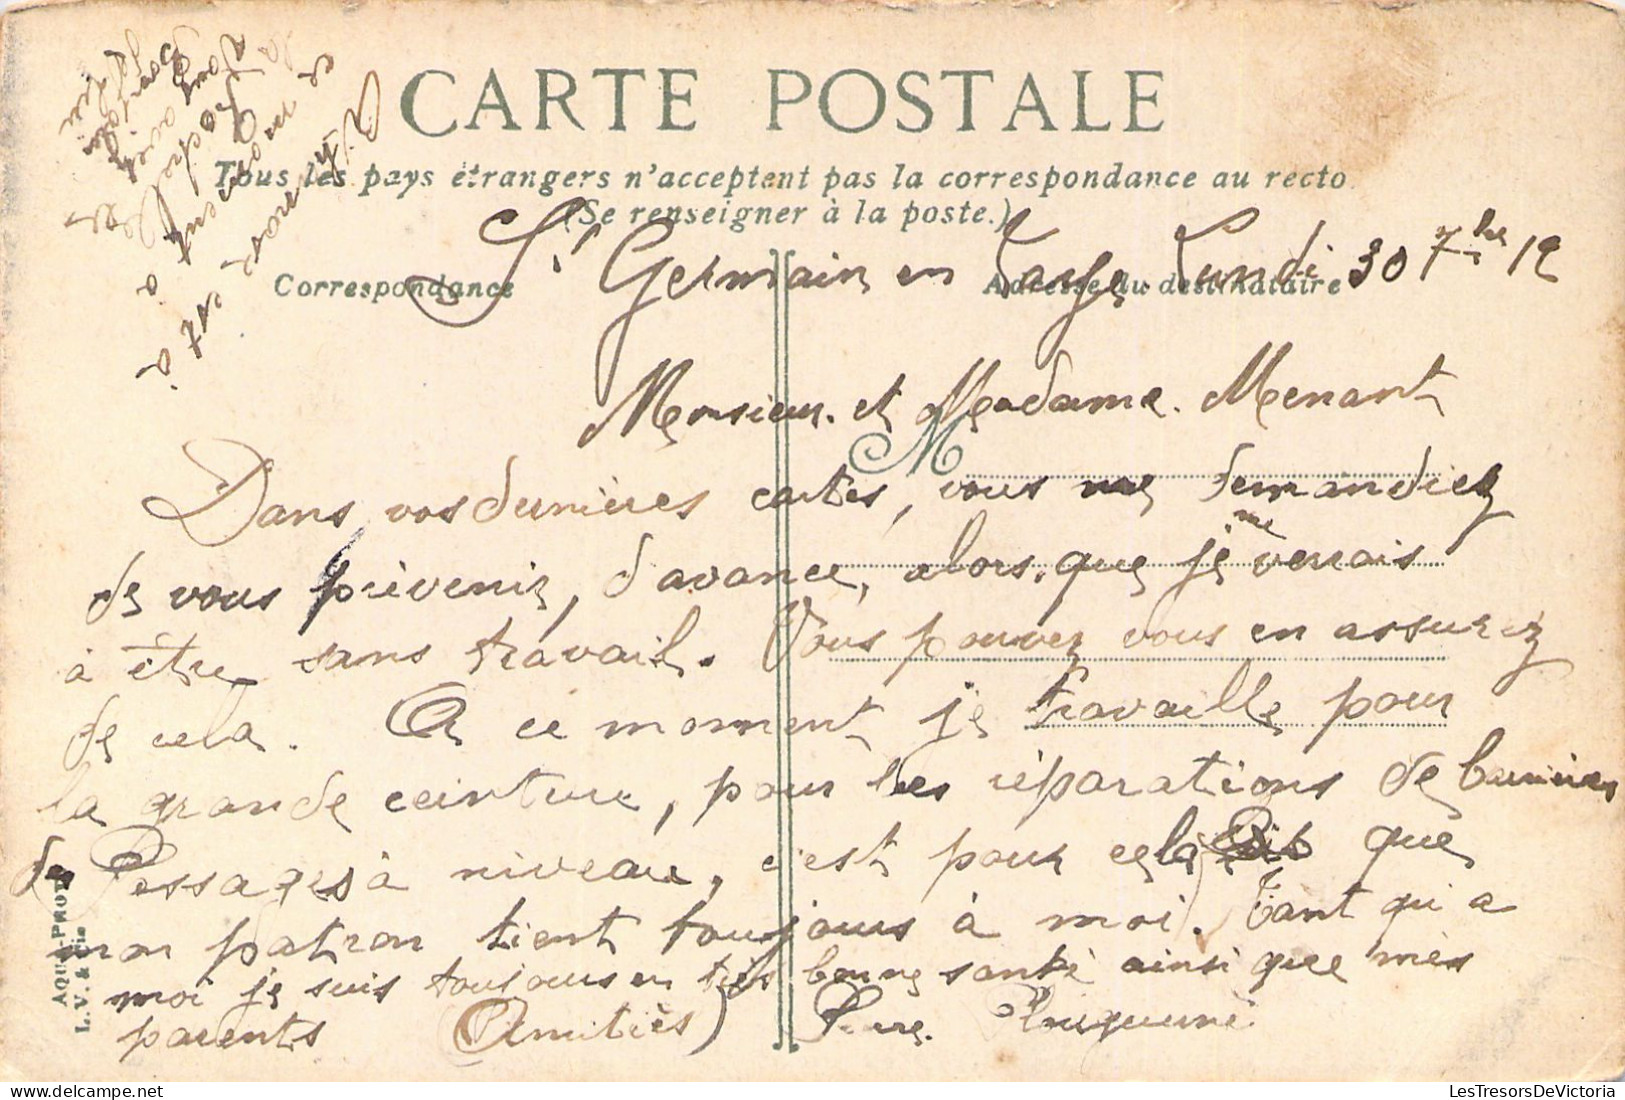 CARTE POSTALE
Tous les pays étrangers n'acceptent pas la correspondance au recto
(Se renseigner à la poste.)
Correspondance
Adresse du destinataire
St Germain en Laye Lundi 30 7bre 12
Monsieur. et Madame. Menant
M
Dans vos dernières cartes, vous me demandiez
de vous prévenir, d'avance, alors, que je me verrais
à être sans travail. Vous pouvez vous en assurez
de cela. A ce moment je travaille pour
la grande ceinture, pour les réparations de barrières
des Passages à niveau, c'est pour cela que
mon patron tient toujours à moi. Tant qui a
moi je suis toujours en très bonne santé ainsi que mes
parents (Amitiés) Pierre.
AQUA PHOT
L. V. & Cie
LesTresorsDeVictoria.com